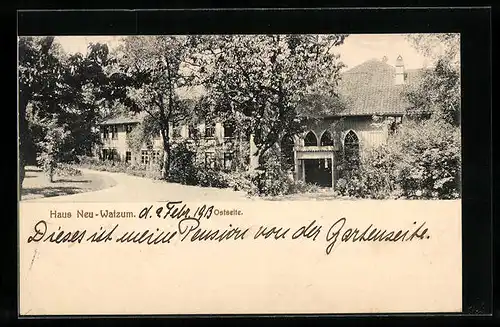 Haus Neu-Watzum. d. 2 Febr. 1913 Ostseite.
Dieses ist meine Pension von der Gartenseite.